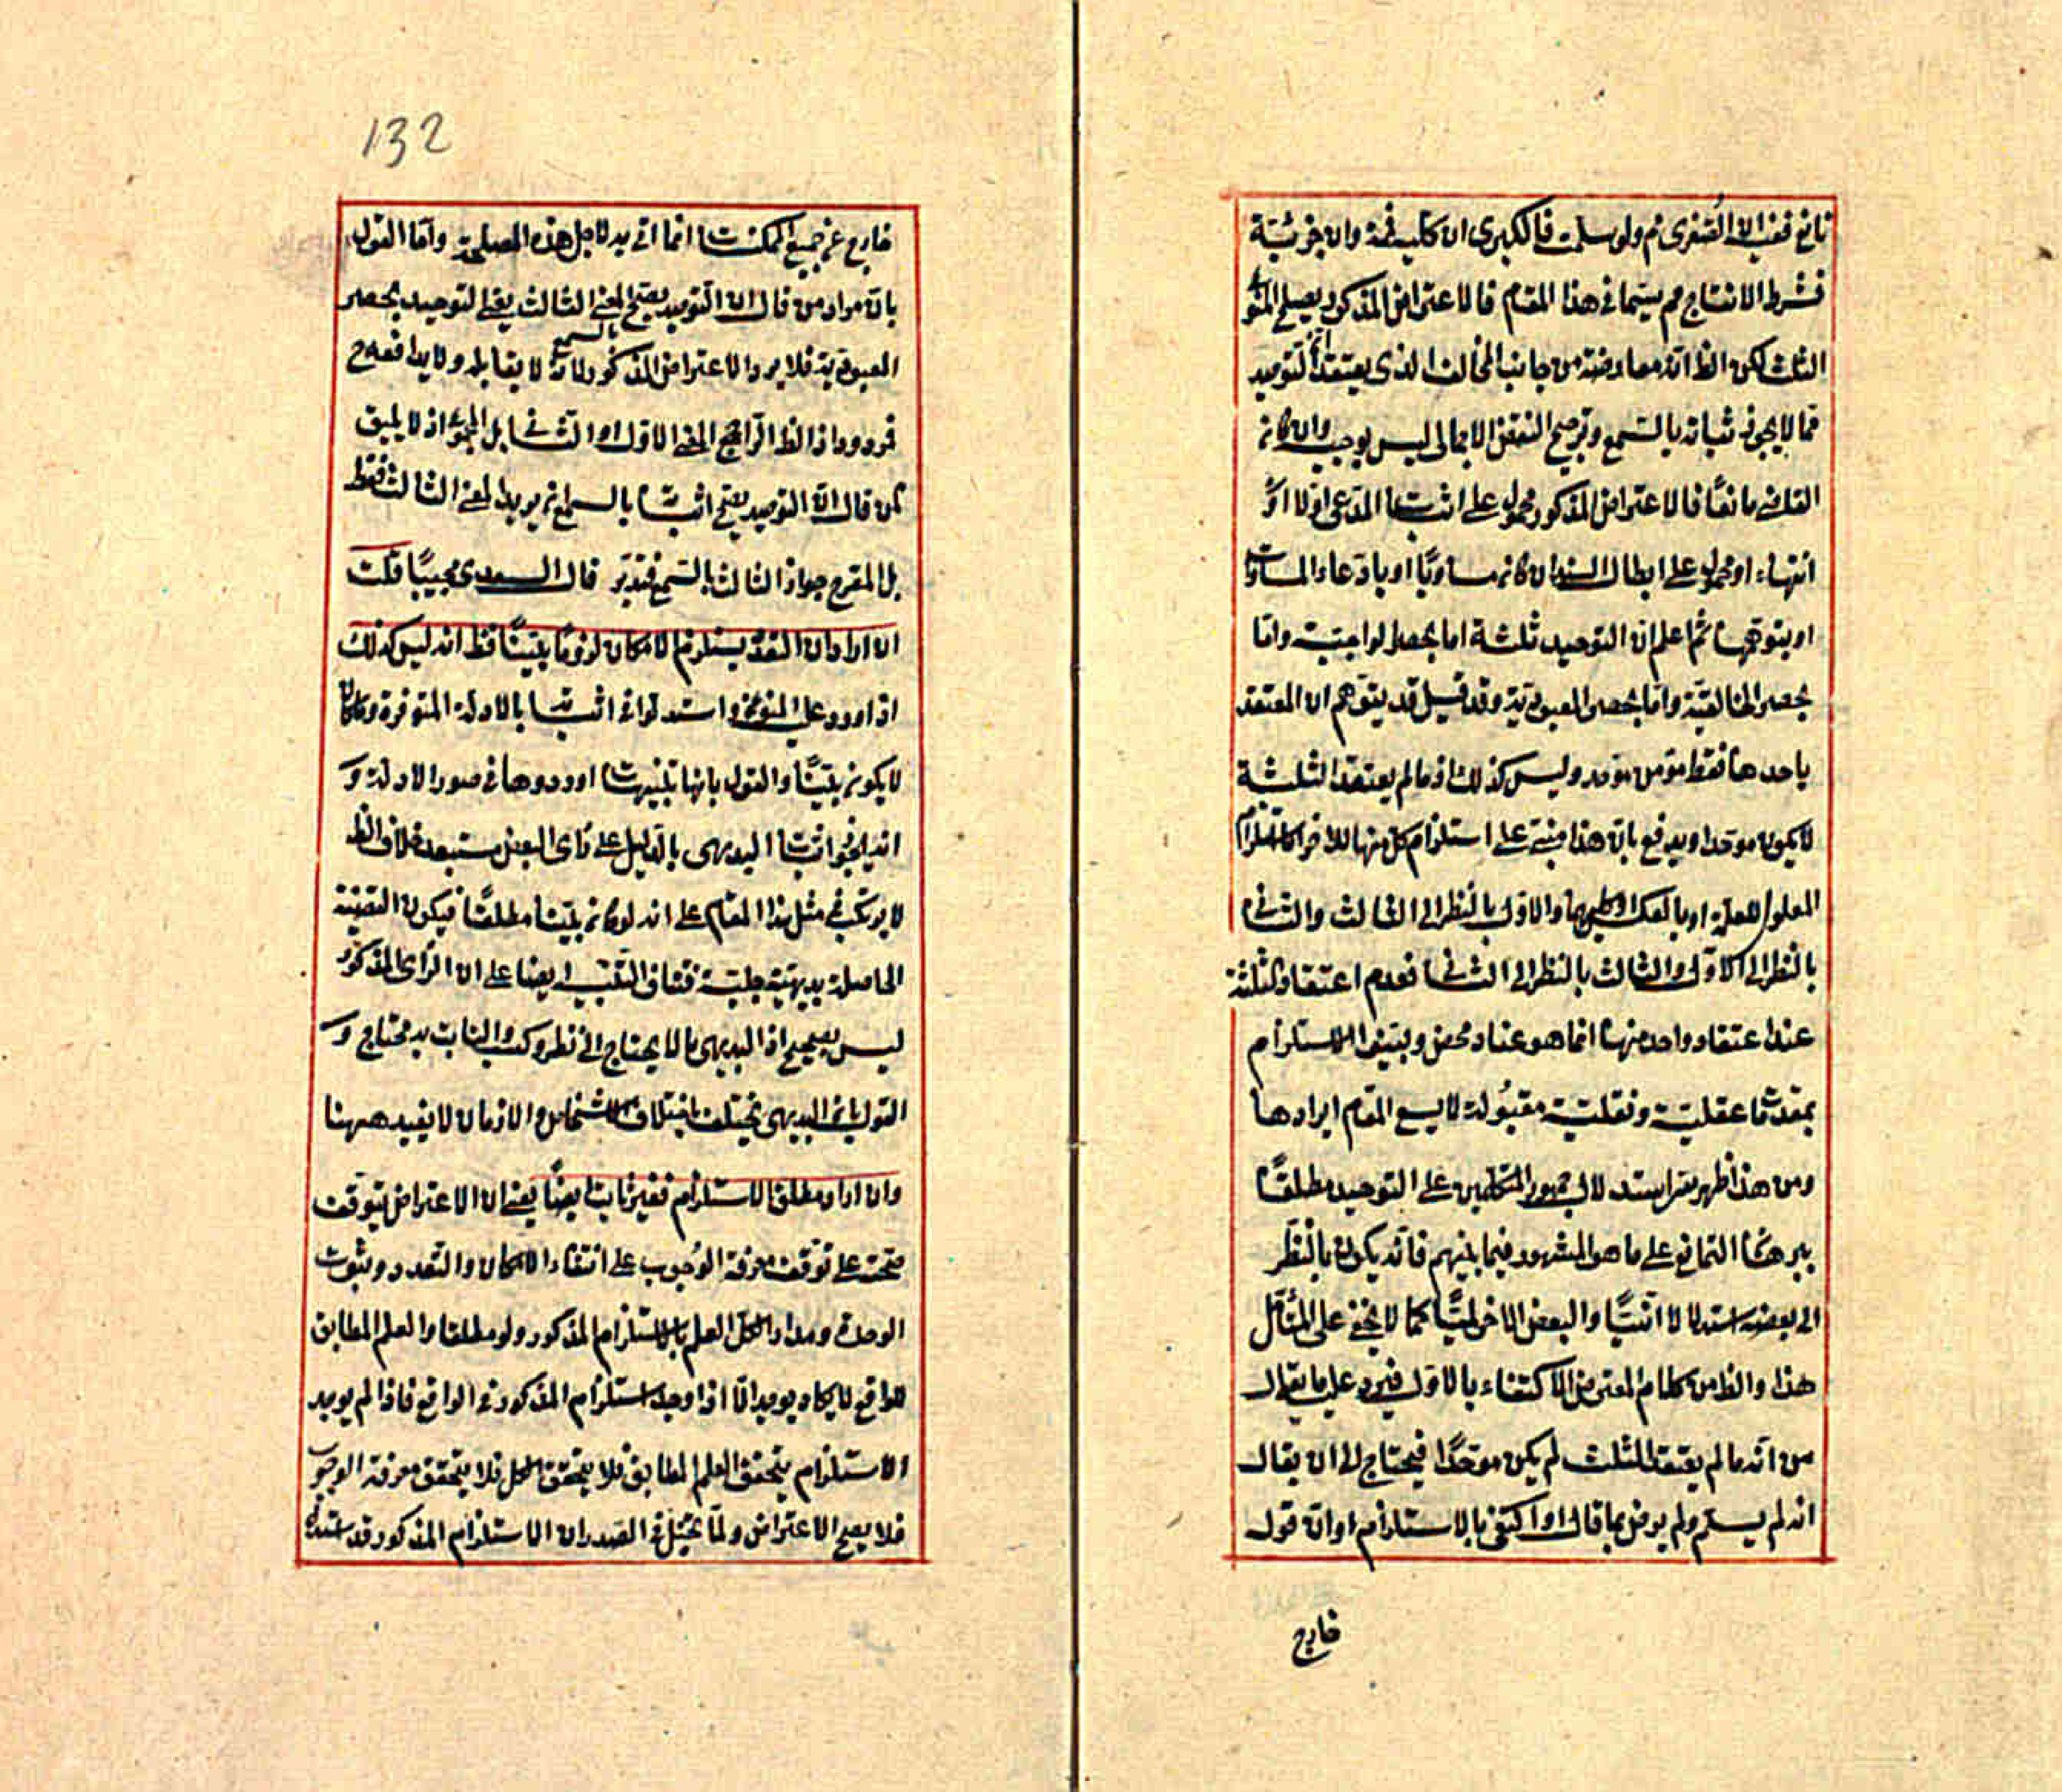 نافع ففيه ان الصغرى م ولو سلمت فالكبرى ان كلية فمم وان جزئية
فشرط الانتاج مم سيما في هذا المقام فالاعتراض المذكور يصلح المنوع
الثلث لكن الظ انه معارضة من جانب المخالف الذى يعتقد ان التوحيد
مما لا يجوز اثباته بالسمع وترجيح النقض الاجمالى ليس بوجيه وان كان
القاضى مانعًا فالاعتراض المذكور محمول على اثبات المدعى اولا او
انتهاء او محمول على ابطال السند ان كان مساويًا او بادعاء المساوات
او بتوهمها ثم اعلم ان التوحيد ثلثة اما بحصر الواجبية واما
بحصر الخالقية واما بحصر المعبودية وقد قيل قد يتوهم ان المعتقد
باحدها فقط مؤمن موحد وليس كذلك اذ ما لم يعتقد الثلثة
لا يكون موحدا ويدفع بان هذا مبنى على استلزام كل منها للاخر كاستلزام
المعلول للعلة او بالعكس او كليهما والاول بالنظر الى الثالث والثانى
بالنظر الى الاول والثالث بالنظر الى الثانى فعدم اعتقاد الثلثة
عند اعتقاد واحد منها انما هو عناد محض ويتبين الاستلزام
بمقدمات عقلية ونقلية مقبولة لا يسع المقام ايرادها
ومن هذا ظهر سر استدلال جمهور المتكلمين على التوحيد مطلقًا
ببرهان التمانع على ما هو المشهور فيما بينهم فانه يكون بالنظر
الى بعضه استدلالا انيًّا والبعض الاخر لميًّا كما لا يخفى على المتأمل
هذا والظ من كلام المعترض الاكتفاء بالاول فيرد عليه ما يقال
من انه ما لم يعتقد الثلث لم يكن موحدًا فيحتاج الى ان يقال
انه لم يسلم ولم يرض بما قال او اكتفى بالاستلزام او ان قوله
خارج
132
خارج عن جميع الممكنات انما اتى به لاجل هذه المصلحة واما القول
بان مراد من قال ان التوحيد يصح المعنى الثالث يعنى التوحيد بحصر
المعبودية فلا يرد الاعتراض المذكور لانه بالسمع لا يقابله ولا يدافعه ح
فمردود اذ الظ الراجح المعنى الاول او الثانى بل المجموع اذ لا يليق
لمن قال ان التوحيد يصح اثباته بالسمع ان يريد المعنى الثالث فقط
بل المقرح جواز الثالث بالسمع فتدبر قال السعدى مجيبًا قلت
ان اراد ان التعدد يستلزم الامكان لزومًا بيّنًا فظ انه ليس كذلك
اذ اورد على المنوع واستدلوا فى اثباته بالادلة المتوفرة وما كان
لا يكون بيّنًا والقول بانها تنبيهات اوردوها فى صور الادلة و
انه يجوز اثبات البديهى بالدليل على رأى البعض مستبعد خلاف الظ
لا يرتكب فى مثل هذا المقام على انه لو كان بيّنا مطلقًا فيكون القضية
الحاصلة بديهية جلية فتنافى التنبيه ايضا على ان الرأى المذكور
ليس بصحيح اذ البديهى ما لا يحتاج الى نظر وكسب والثابت به محتاج و
القول بان البديهى يختلف باختلاف الاشخاص والازمان لا يفيد ههنا
وان اراد مطلق الاستلزام فغير ثابت ايضًا يعنى ان الاعتراض يتوقف
صحته على توقف معرفة الوجوب على انتفاء الامكان والتعدد وثبوت
الوحدة ومدار الكل العلم بالاستلزام المذكور ولو مطلقا والعلم المطابق
للواقع لا يكاد يوجد الا اذا وجد استلزام المذكور فى الواقع فاذا لم يوجد
الاستلزام يتحقق العلم المطابق فلا يتحقق الكل فلا يتحقق معرفة الوجوب
فلا يصح الاعتراض ولما تخيل فى الصدر ان الاستلزام المذكور قد استدل